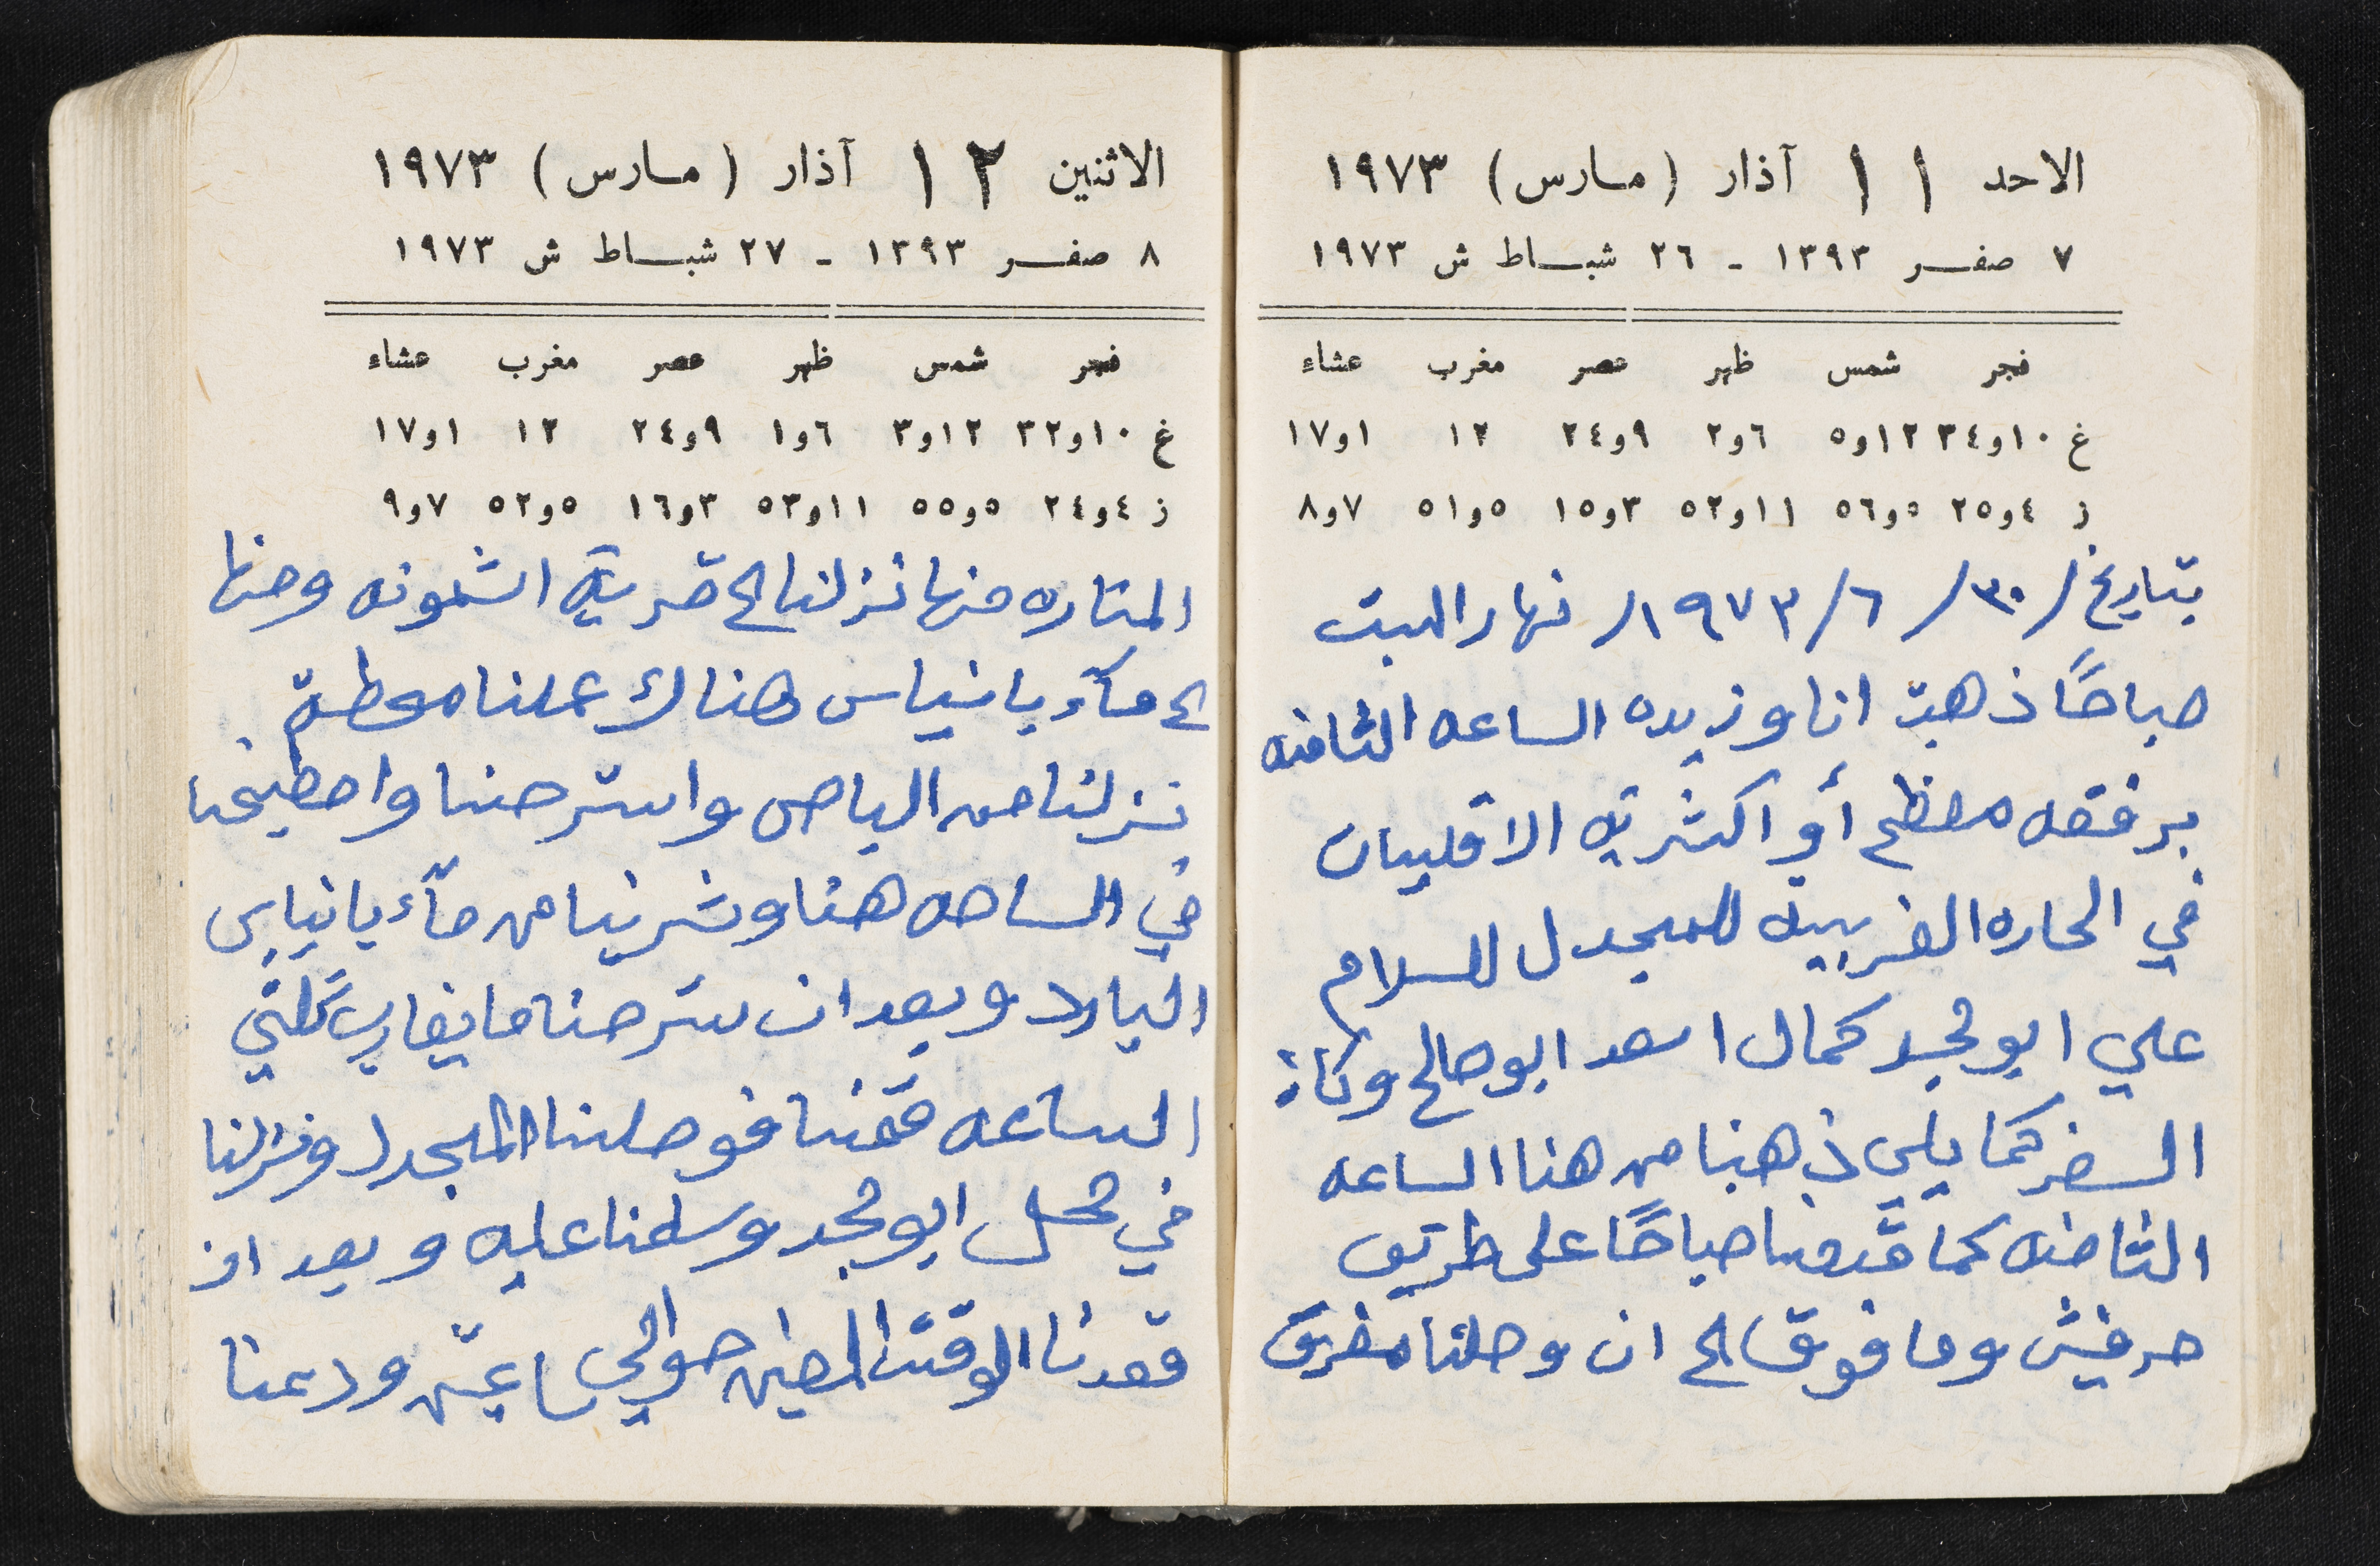 الاحد ١١ آذار (مارس) ١٩٧٣
٧ صفر ١٣٩٣ - ٢٦ شباط ش ١٩٧٣
فجر شمس ظهر عصر مغرب عشاء
غ ١٠و٣٤ ١٢و٥ ٦و٢ ٩و٢٤ ١٢ ١و١٧
ز ٤و٢٥ ٥و٥٦ ١١و٥٣ ٣و١٥ ٥و٥١ ٧و٨
بتاريخ /٣٠/ ٦/ ١٩٧٣/ نهار السبت
صباحًا ذهبت انا وزيده الساعه الثامنه
برفقه معظم أو اكثرية الاقليبات
في الحاره الغربيه للمجدل للسلام
علي ابو مجيد كمال اسعد ابو صالح وكان
السفر كما يلي ذهبنا من هنا الساعه
الثامنه كما قدمنا صباحًا على طريق
حرفيش وما فوق الى ان وصلنا مفرق
الاثنين ١٢ آذار (مارس) ١٩٧٣
٨ صفر ١٣٩٣ - ٢٧ شباط ش ١٩٧٣
فجر شمس ظهر عصر مغرب عشاء
غ ١٠و٣٢ ١٢و٣ ٦و١ ٩و٢٤ ١٢ ١و١٧
ز ٤و٢٤ ٥و٥٥ ١١و٥٣ ٣و١٦ ٥و٥٢ ٧و٩
المناره منها نزلنا الى قرية اشمونه ومنها
الى مآء بانياس هناك عملنا محطة
نزلنا من الباص واسترحنا واصطبحنا
في الساحه هنا وشربنا من مآء بانياس
البارد وبعد ان سترحنا ما يقارب ثلثي
الساعه قمنا فوصلنا المجدل ونزلنا
في محل ابو مجيد وسلمنا عليه وبعد ان
قعدنا الوقت المعين حوالي ساعتين ودعنا